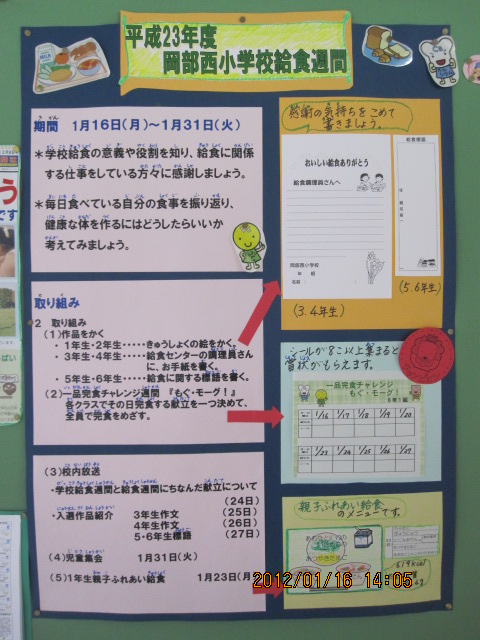 平成23年度
岡部西小学校給食週間
期間　1月16日(月)～1月31日(火)
＊学校給食の意義や役割を知り、給食に関係
する仕事をしている方々に感謝しましょう。
＊毎日食べている自分の食事を振り返り、
健康な体を作るにはどうしたらいいか
考えてみましょう。
取り組み
2　取り組み
(1)作品をかく
・1年生・2年生・・・・・きゅうしょくの絵をかく。
・3年生・4年生・・・・・給食センターの調理員さん
に、お手紙を書く。
・5年生・6年生・・・・・給食に関する標語を書く。
(2)一品完食チャレンジ週間　『もぐ・モーグ！』
各クラスでその日完食する献立を一つ決めて、
全員で完食をめざす。
(3)校内放送
・学校給食週間と給食週間にちなんだ献立について
(24日)
・入選作品紹介　3年生作文　(25日)
4年生作文　(26日)
5・6年生標語　(27日)
(4)児童集会　1月31日(火)
(5)1年生親子ふれあい給食　1月23日(月
感謝の気持ちをこめて
書きましょう。
おいしい給食ありがとう
給食調理員さんへ
岡部西小学校
年　組
名前
(3.4年生)
給食標語
(5.6年生)
シールが8こ以上集まると
賞状がもらえます。
一品完食チャレンジ
もぐ・モーグ！
1/16 1/17 1/18 1/19 1/20
1/23 1/24 1/25 1/26 1/27
親子ふれあい給食
のメニューです。
2012/01/16 14:05